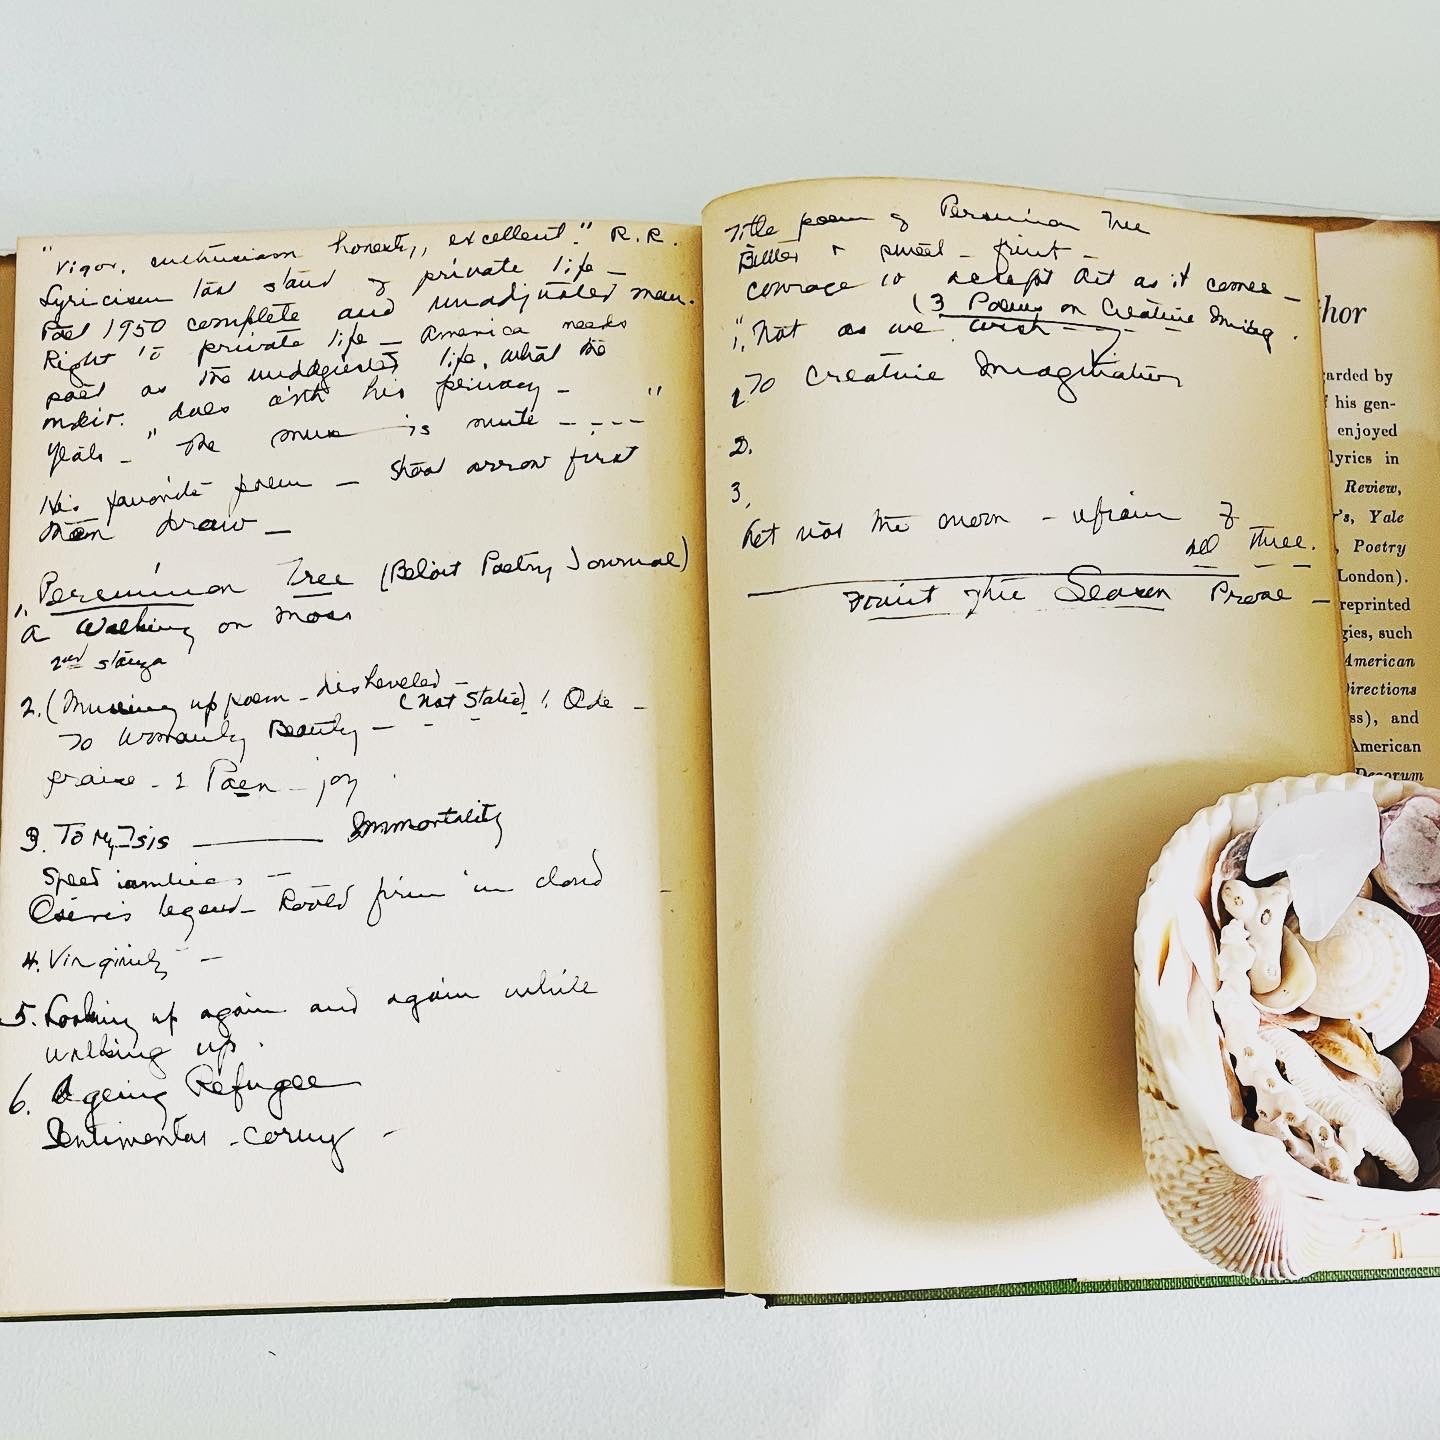 "Vigor, enthusiasm honesty, excellent." R.R.
Lyricism last stand of private life —
Poet 1950 complete and unadjusted man.
Right to private life — America needs
poet as the unadjusted life, what the
indiv. "does with his privacy — "
Yeats — "The muse is mute - - - - "
His favorite poem — Shoot arrow first
then draw —
1. Persimmon Tree (Beloit Poetry Journal)
a Walking on Moss
2nd stanza
2. (Mussing up poem - disheveled —
(Not Static) Ode —
To Womanly Beauty —
praise - Paen - joy
3. To My Isis ——— Immortality
Speed iambics —
Osiris legend - Rooted firm in cloud
4. Virginity —
5. Looking up again and again while
walking up.
6. Ageing Refugee
Sentimental - corny —
Title poem of Persimmon Tree
Bitter & sweet - fruit -
courage to accept Art as it comes —
(3 Poems on Creative Imag.
1. "Not as we wish —
1. To Creative Imagination
2.
3.
Let not the moon - refrain of
all three.
Fruit of the Season Prose —
thor
garded by
f his gen-
enjoyed
lyrics in
Review,
's, Yale
, Poetry
London).
reprinted
gies, such
American
Directions
ss), and
American
Decorum